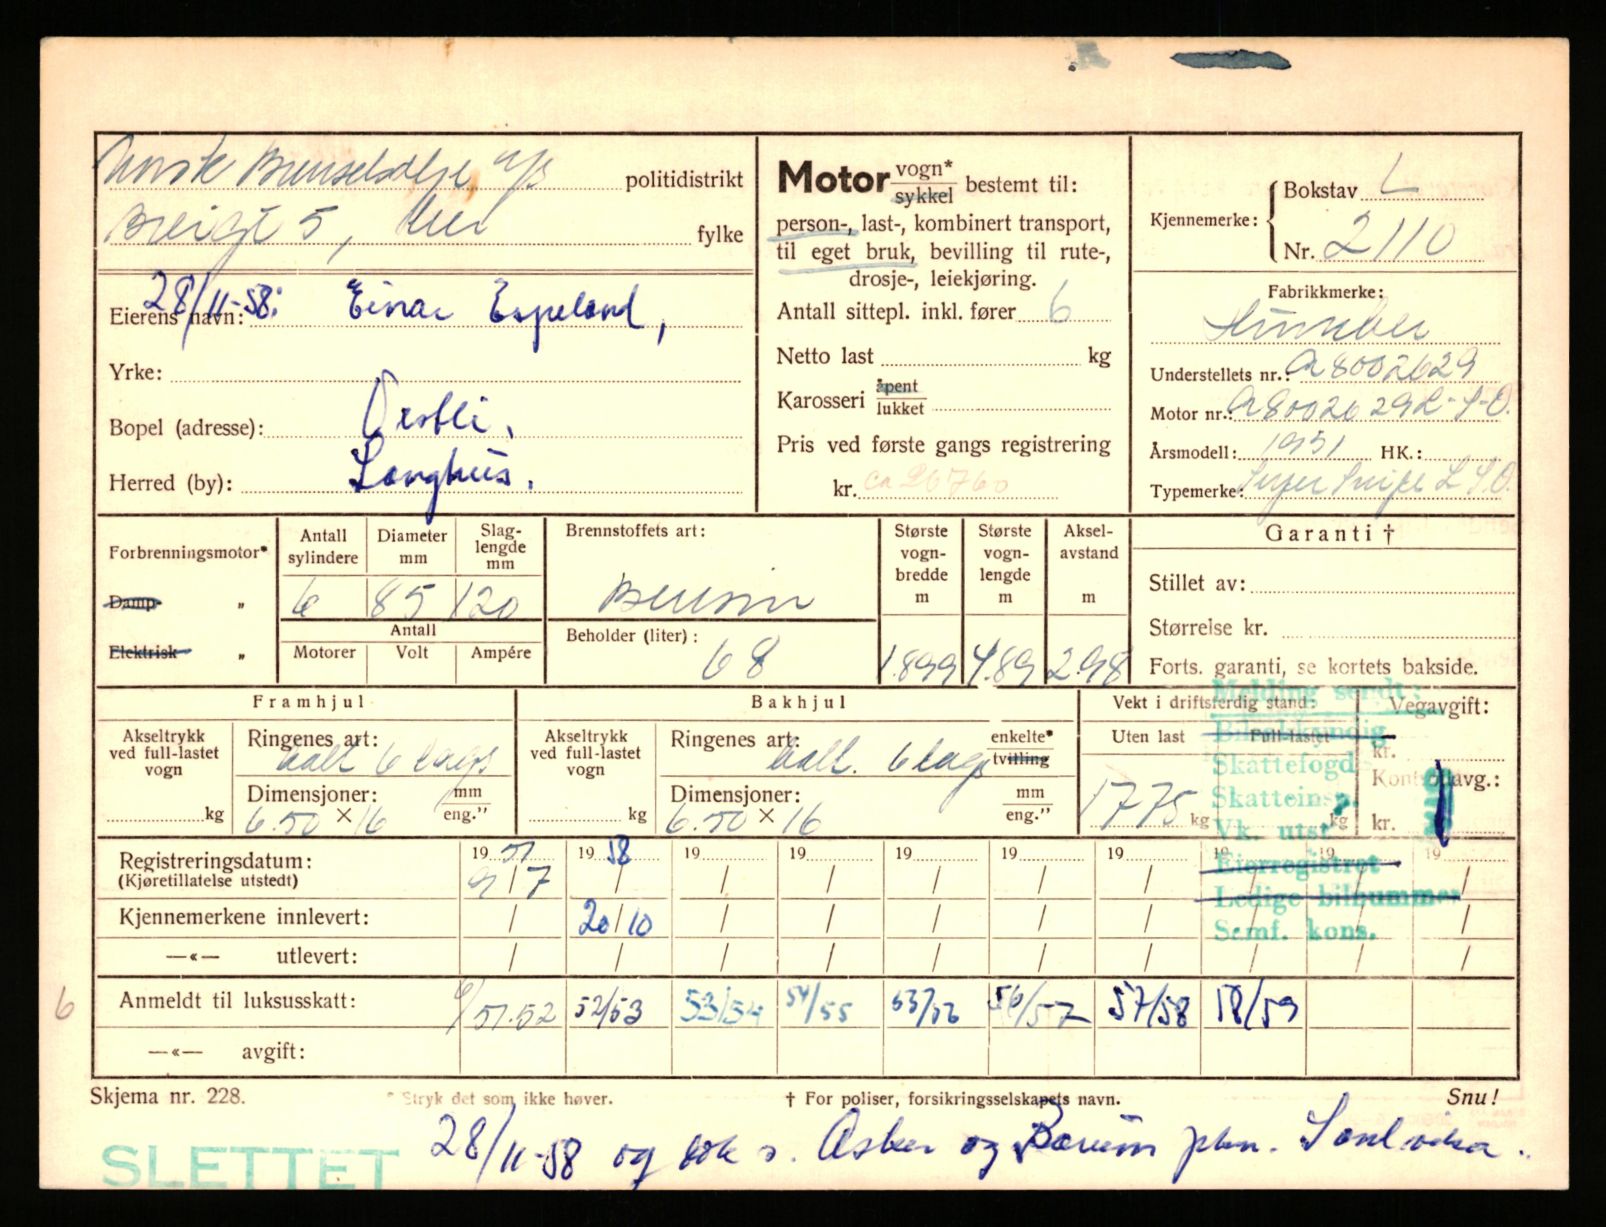 Norsk Brenselolje A/S politidistrikt
Breigt 5, fylke
28/11-58:
Eierens navn: Einar Espeland,
Yrke:
Bopel (adresse):
Herred (by): Langhus.
Motor vogn* sykkel bestemt til:
person-, last-, kombinert transport,
til eget bruk, bevilling til rute-,
drosje-, leiekjøring.
Antall sittepl. inkl. fører 6
Netto last kg
Karosseri åpent lukket
Pris ved første gangs registrering
kr. ca 26760
Kjennemerke: Bokstav L
Nr. 2110
Fabrikkmerke:
Humber
Understellets nr.: A8002629
Motor nr.: A8002629L-S-O.
Årsmodell: 1951 HK.:
Typemerke: Super Snipe L S.O.
Forbrenningsmotor*
Damp- „
Elektrisk „
Antall sylindere Diameter mm Slag-lengde mm
6 85 120
Antall
Motorer Volt Ampére
Brennstoffets art:
Bensin
Beholder (liter):
68
Største vogn-bredde m Største vogn-lengde m Aksel-avstand m
1.899 4.89 2.98
Garanti †
Stillet av:
Størrelse kr.
Forts. garanti, se kortets bakside.
Framhjul
Akseltrykk ved full-lastet vogn
kg
Ringenes art: ball 6 lags
Dimensjoner: mm eng."
6.50 × 16
Bakhjul
Akseltrykk ved full-lastet vogn
kg
Ringenes art: ball. 6 lags enkelte* tvilling
Dimensjoner: mm eng."
6.50 × 16
Vekt i driftsferdig stand:
Uten last Full-lastet
1775 kg kg
Vegavgift:
kr.
Kontrollavg.:
kr.
Melding sendt:
Bilsakkyndig
Skattefogd
Skatteinsp.
Vk. utst.
Eierregistret
Ledige bilnummer
Semf. kons.
Registreringsdatum: 19 51 19 58 19 19 19 19 19 19 19 19
(Kjøretillatelse utstedt) 9/7 / / / / / / / / /
Kjennemerkene innlevert: / 20/10 / / / / / / / /
—«— utlevert: / / / / / / / / / /
6 Anmeldt til luksusskatt: 51.52 52/53 53/54 54/55 56/57 57/58 58/59
—«— avgift:
Skjema nr. 228. * Stryk det som ikke høver. † For poliser, forsikringsselskapets navn. Snu!
28/11-58 og bok s. Asker og Bærum pkm. Sandvika.
SLETTET